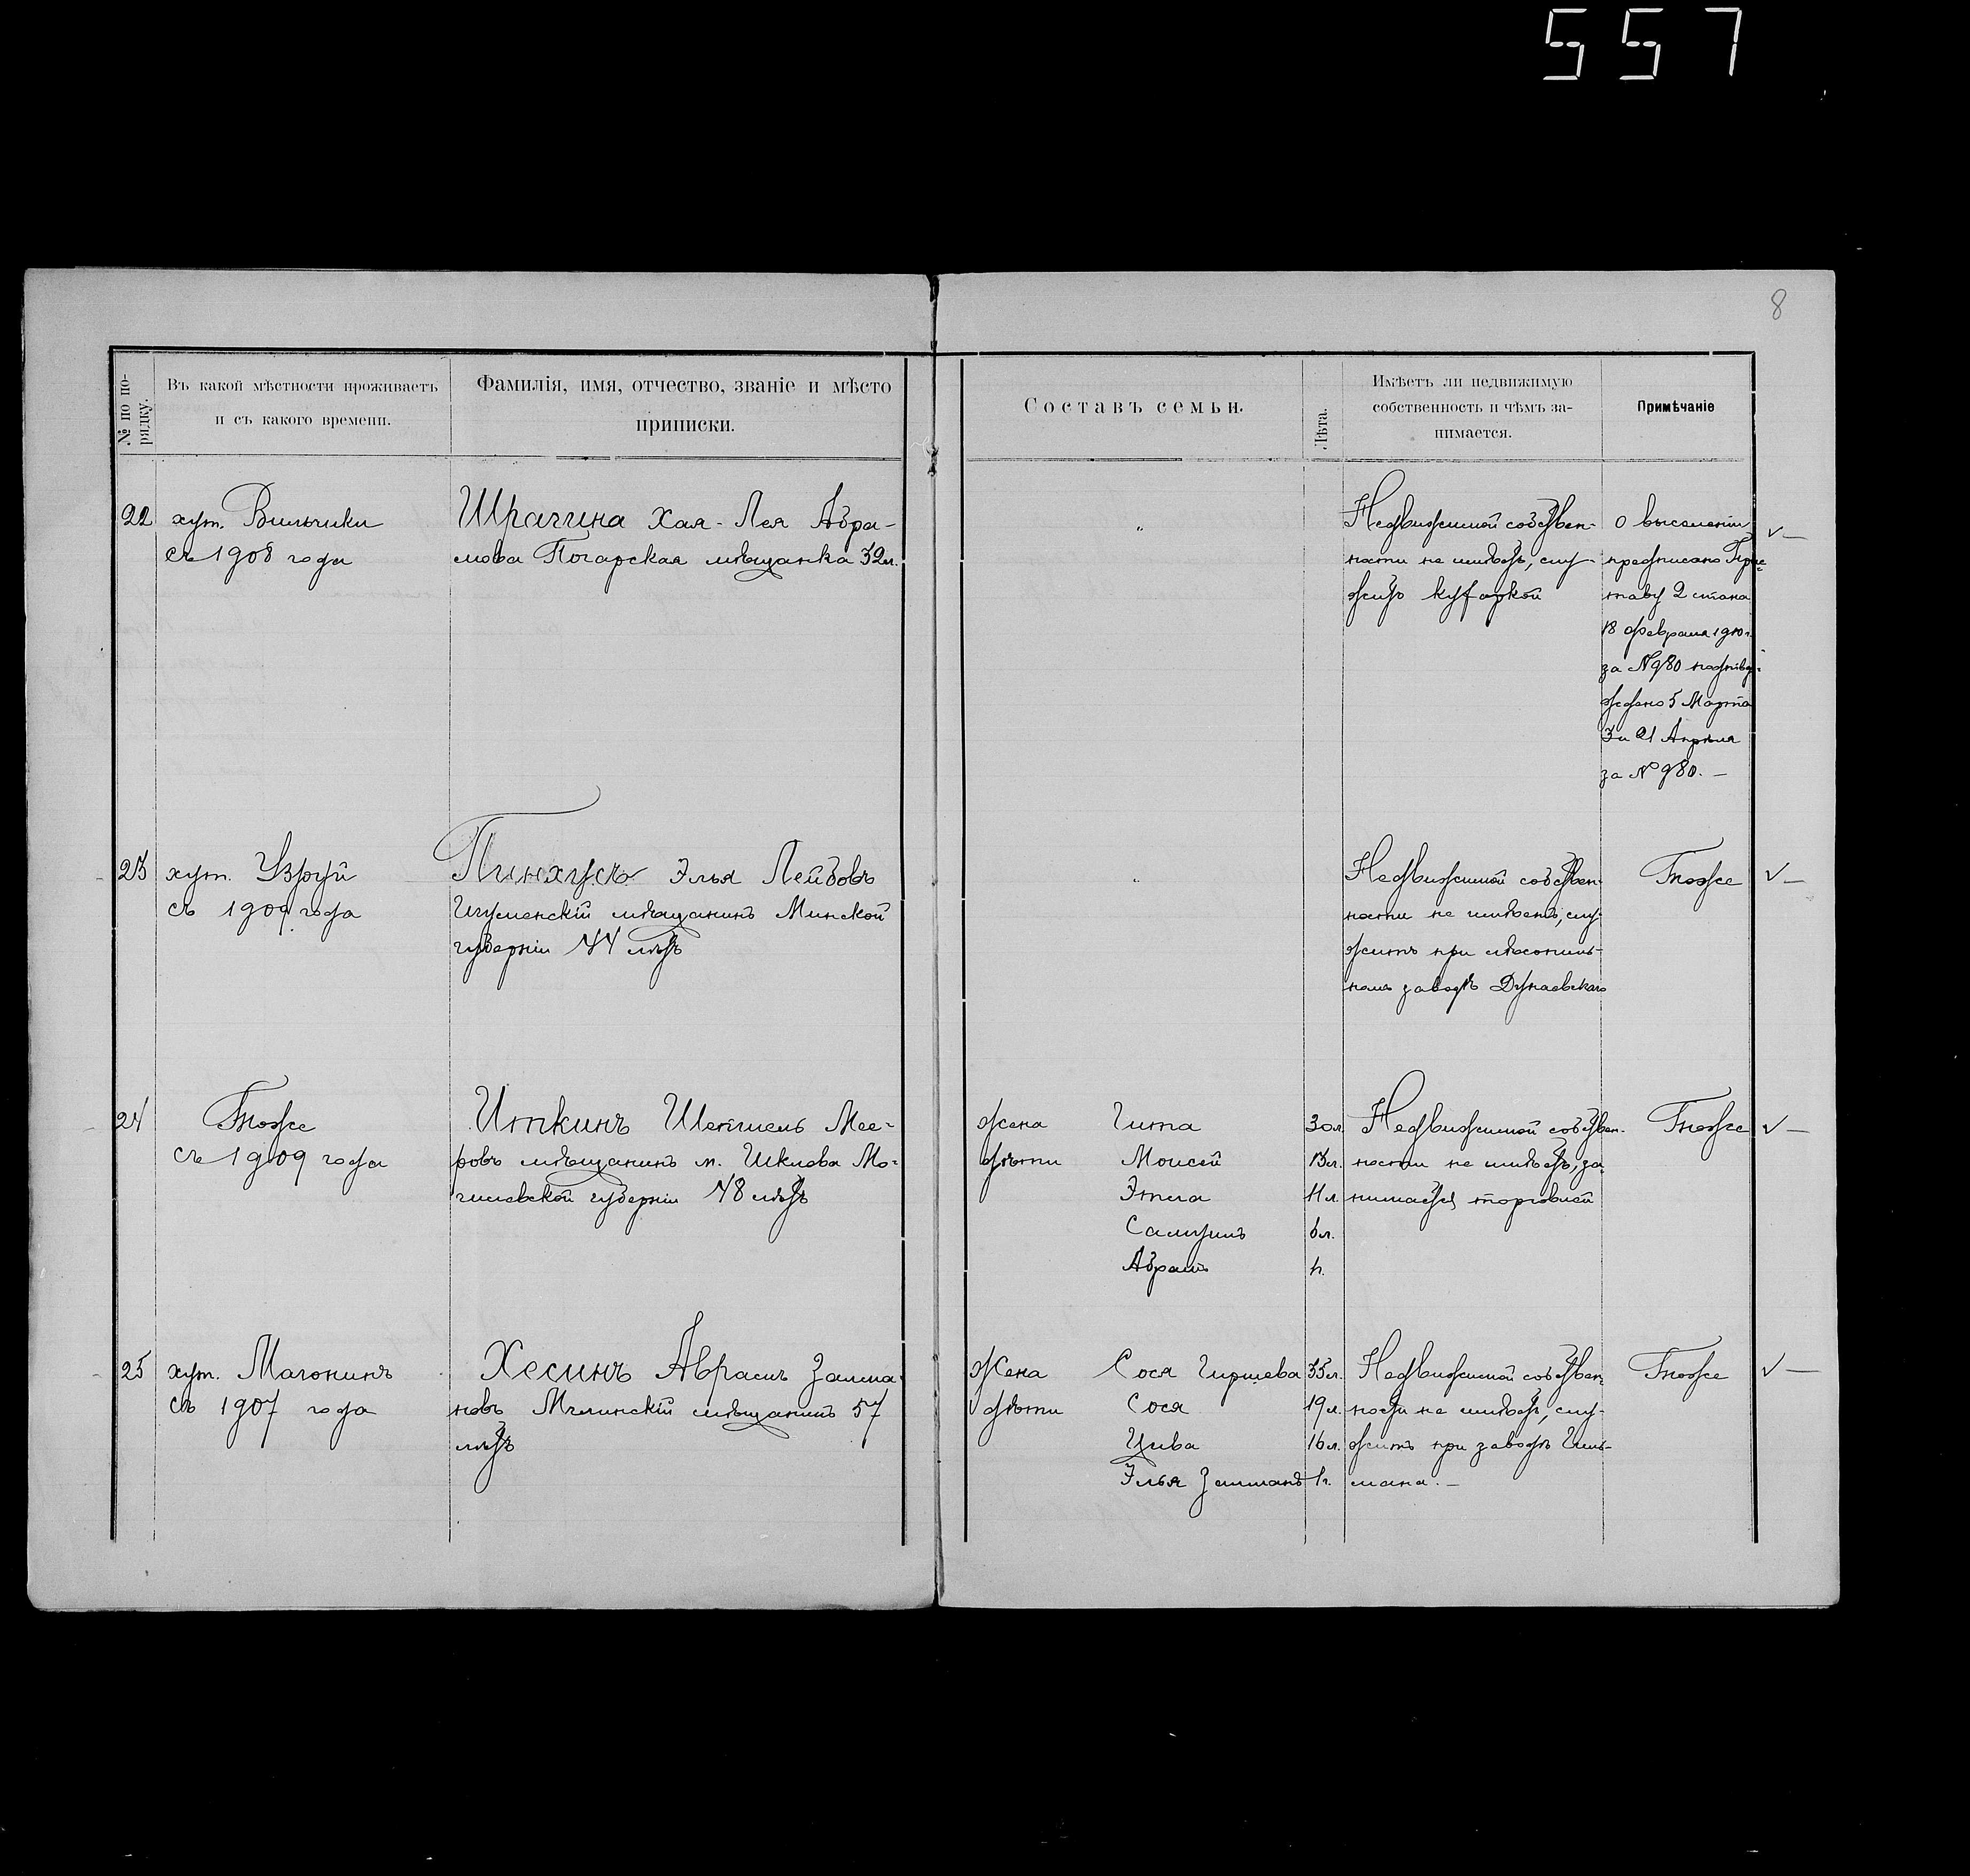 557
8
№ по по-
рядку.
Въ какой мѣстности проживаетъ
и съ какого времени.
Фамилія, имя, отчество, званіе и мѣсто
приписки.
Составъ семьи.
Лѣта.
Имѣетъ ли недвижимую
собственность и чѣмъ за-
нимается.
Примѣчаніе
22 хут. Вильчики
съ 1908 года
Шрагина Хая-Лея Абра-
мова Погарская мѣщанка 32 л.
"
Недвижимой собствен-
ности не имѣетъ, слу-
житъ кухаркой
О выселеніи
предписано Прис-
таву 2 стана
18 февраля 1910 г.
за № 980 подтвер-
ждено 5 Марта
и 21 Апрѣля
за № 980. —
23 хут. Узруй
съ 1909 года
Пинхусъ Элья Лейбовъ
Игуменскій мѣщанинъ Минской
губерніи 44 лѣтъ
"
Недвижимой собствен-
ности не имѣетъ, слу-
житъ при лѣсопиль-
номъ заводѣ Дунаевскаго
Тоже
24 Тоже
съ 1909 года
Иткинъ Шепшель Мее-
ровъ мѣщанинъ м. Шклова Мо-
гилевской губерніи 48 лѣтъ
жена Гита 30 л.
дѣти Моисей 13 л.
Этля 11 л.
Самуилъ 6 л.
Абрамъ
Недвижимой собствен-
ности не имѣетъ, за-
нимается торговлей
Тоже
25 хут. Магонинъ
съ 1907 года
Хесинъ Авраамъ Залма-
новъ Мглинскій мѣщанинъ 57
лѣтъ
Жена Сося Гиршева 35 л.
дѣти Сося 19 л.
Цива 16 л.
Элья Залманъ 1 г.
Недвижимой собствен-
ности не имѣетъ, слу-
житъ при заводѣ Гиль-
мана. —
Тоже